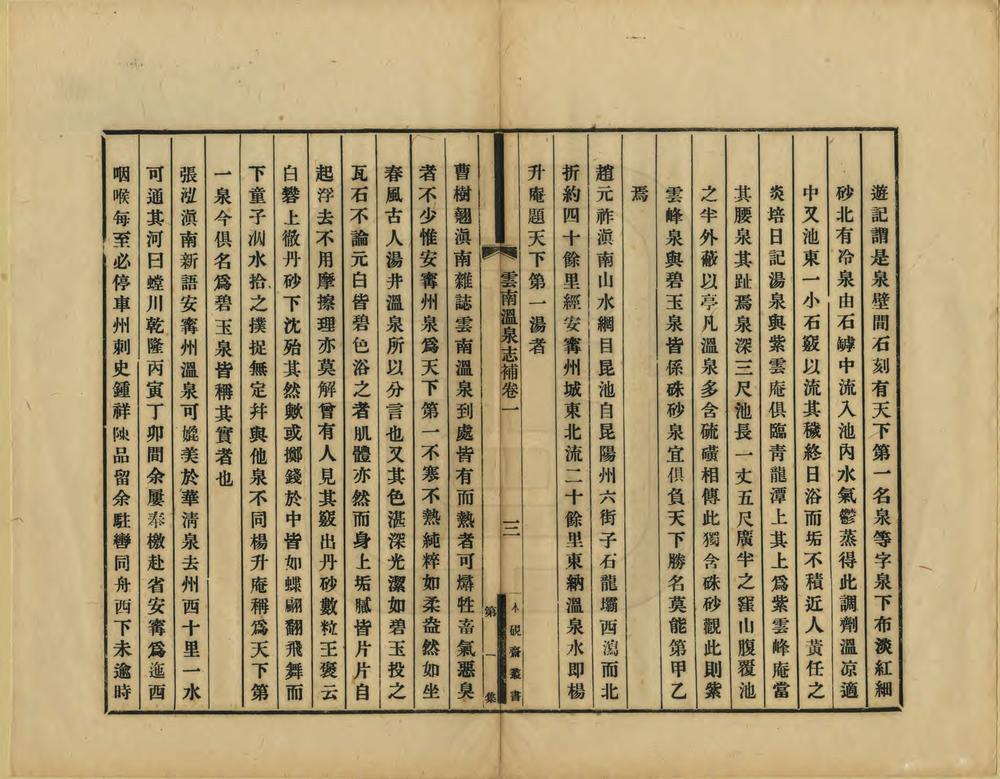 遊記謂是泉壁間石刻有天下第一名泉等字泉下布淡紅細
砂北有冷泉由石罅中流入池內水氣鬱蒸得此調劑溫涼適
中又池東一小石竅以流其穢終日浴而垢不積近人黃任之
炎培日記湯泉與紫雲庵俱臨青龍潭上其上爲紫雲峰庵當
其腰泉其趾焉泉深三尺池長一丈五尺廣半之窪山腹覆池
之半外蔽以亭凡溫泉多含硫磺相傳此獨含硃砂觀此則紫
雲峰泉與碧玉泉皆係硃砂泉宜俱負天下勝名莫能第甲乙
焉
趙元祚滇南山水綱目昆池自昆陽州六街子石龍壩西瀉而北
折約四十餘里經安寗州城東北流二十餘里東納溫泉水即楊
升庵題天下第一湯者
雲南溫泉志補卷一
三
小硯齋叢書
第一集
曹樹翹滇南雜誌雲南溫泉到處皆有而熱者可燖牲畜氣惡臭
者不少惟安寗州泉爲天下第一不寒不熱純粹如柔盎然如坐
春風古人湯井溫泉所以分言也又其色湛深光潔如碧玉投之
瓦石不論元白皆碧色浴之者肌體亦然而身上垢膩皆片片自
起浮去不用摩擦理亦莫解曾有人見其竅出丹砂數粒王褒云
白礬上徹丹砂下沈殆其然歟或擲錢於中皆如蝶翩翻飛舞而
下童子泅水拾之撲捉無定幷與他泉不同楊升庵稱爲天下第
一泉今俱名爲碧玉泉皆稱其實者也
張泓滇南新語安寗州溫泉可媲美於華清泉去州西十里一水
可通其河曰螳川乾隆丙寅丁卯間余屢奉檄赴省安寗爲迤西
咽喉每至必停車州刺史鍾祥陳品留余駐轡同舟西下未逾時